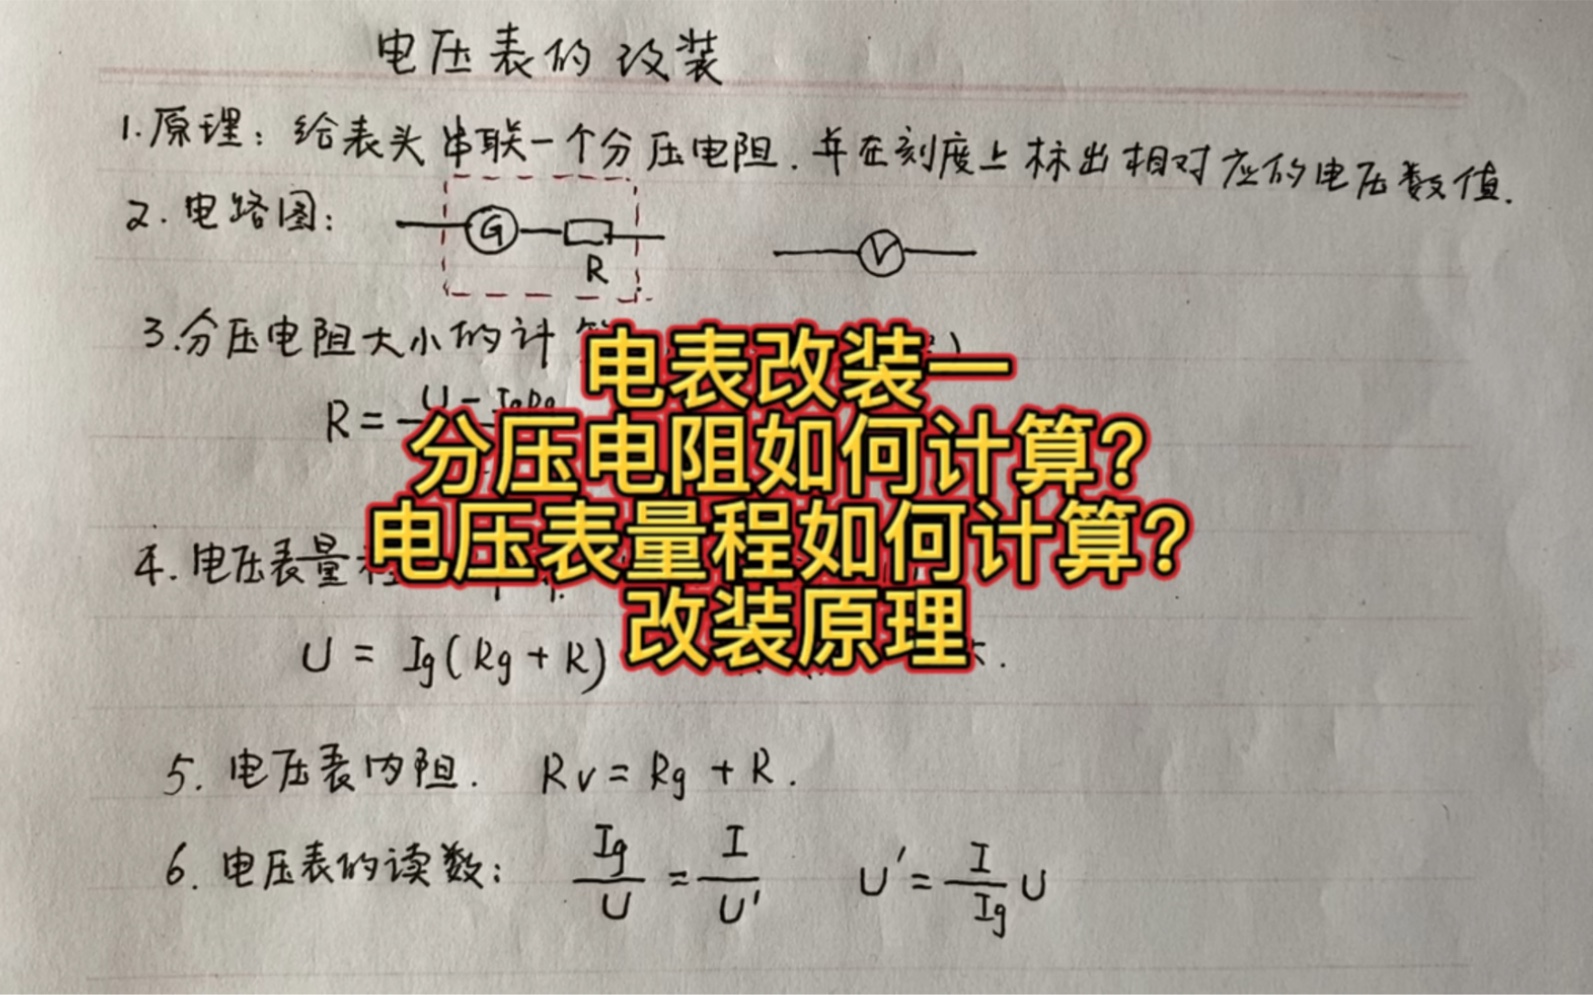 电压表的改装
1.原理：给表头串联一个分压电阻．并在刻度上标出相对应的电压数值．
2.电路图：
G
R
V
3.分压电阻大小的计
R=
电表改装一
分压电阻如何计算？
4.电压表量程
电压表量程如何计算？
改装原理
U = Ig(Rg+R)
5.电压表内阻．Rv=Rg+R．
6.电压表的读数：Ig/U=I/U' U'=I/Ig U